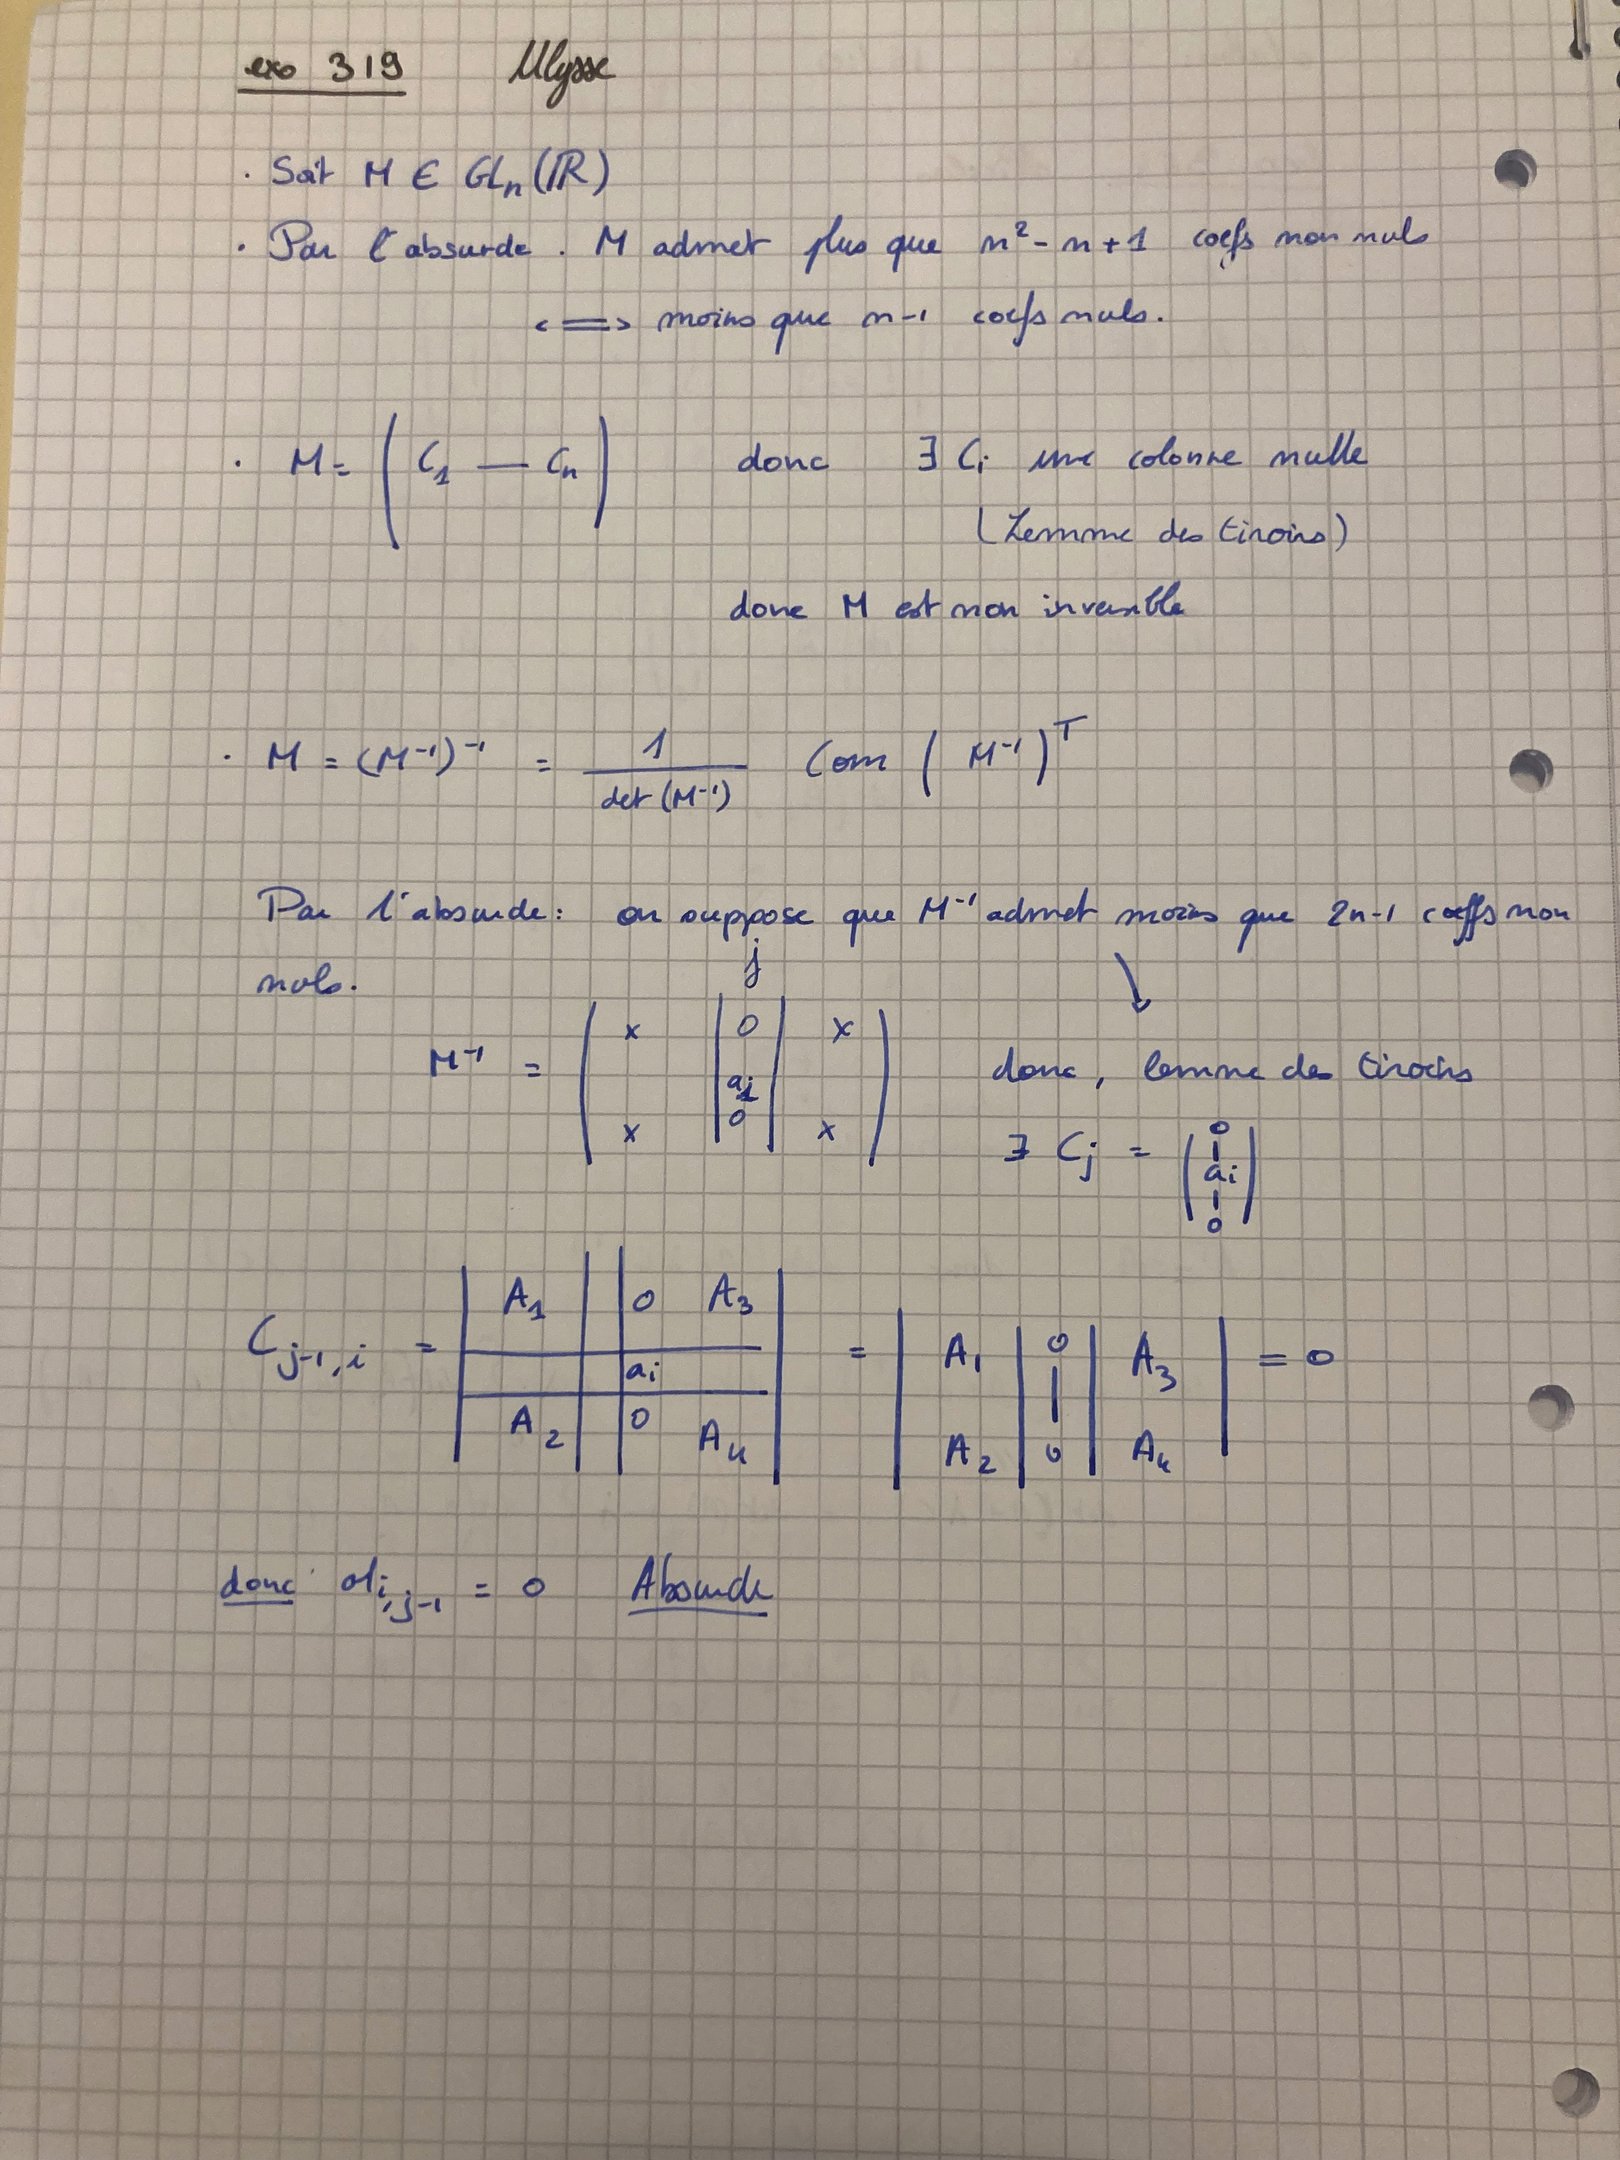 exo 319 Ulysse
. Soit M ∈ GLn(ℝ)
. Par l'absurde . M admet plus que n² - n + 1 coefs non nuls
<=> moins que n-1 coefs nuls.
. M = ( C1 — Cn ) donc ∃ Ci une colonne nulle
(Lemme des tiroirs)
donc M est non inversible
. M = (M⁻¹)⁻¹ = 1 / det (M⁻¹) Com ( M⁻¹ )ᵀ
Par l'absurde : on suppose que M⁻¹ admet moins que 2n-1 coeffs non
nuls.
j
M⁻¹ = ( x | 0 | x
ai
x | 0 | x )
donc, lemme des tiroirs
∃ Cj = ( 0 | ai | 0 )
C j-1, i = | A1 | | 0 A3 |
| | | ai |
| A2 | | 0 A4 |
= | A1 | 0 | A3 |
| A2 | 0 | A4 | = 0
donc i,j-1 = 0 Absurde